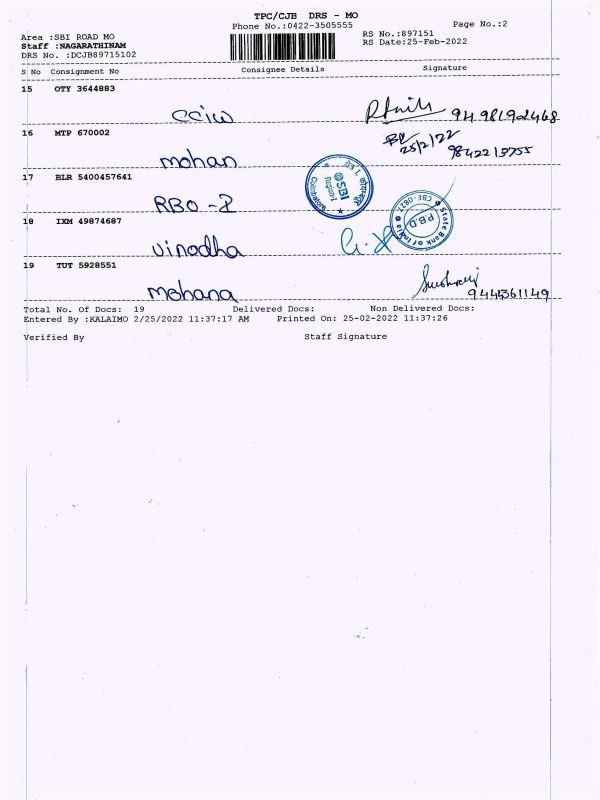 TPC/CJB DRS - MO
Phone No.:0422-3505555
Page No.:2
Area :SBI ROAD MO
RS No.:897151
Staff :NAGARATHINAM
RS Date:25-Feb-2022
DRS No. :DCJB89715102
S No Consignment No Consignee Details Signature
15 OTY 3644883
CCIW 9498192468
16 MTP 670002
25/2/22
mohan 9842213755
17 BLR 5400457641
SBI
Coimbatore
RBO - 2
State Bank of India
P.B.D
CBE-0827
18 IXM 49874687
Vinodha
19 TUT 5928551
Mohana 9444361149
Total No. Of Docs: 19 Delivered Docs: Non Delivered Docs:
Entered By :KALAIMO 2/25/2022 11:37:17 AM Printed On: 25-02-2022 11:37:26
Verified By Staff Signature